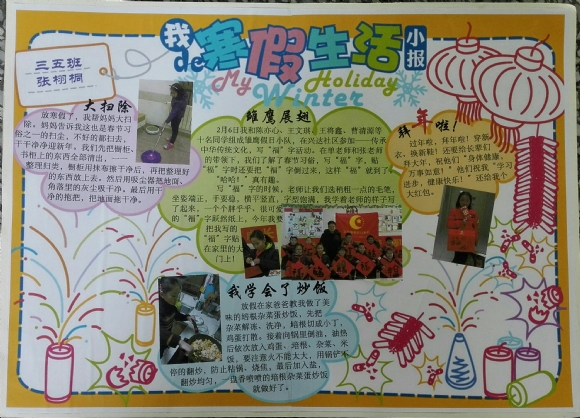 我de寒假生活小报
My Holiday
Winter
三五班
张栩桐
大扫除
放寒假了，我帮妈妈大扫
除。妈妈告诉我这也是春节习
俗之一的扫尘，不好的都扫去，
干干净净迎新年。我们先把橱柜、
书柜上的东西全部清出，
整理归类，橱柜用抹布擦干净后，再把整理好
的东西放上去，然后用吸尘器拖地面，
角落里的灰尘吸干净。最后用干
净的拖把，把地面拖干净。
雏鹰展翅
2月6日我和陈亦心、王文琪、王将鑫、曹清源等
十名同学组成雏鹰假日小队，在兴达社区参加——传承
中华传统文化，写“福”字活动。在单老师和张老师
的带领下，我们了解了春节习俗，写“福”字，贴
“福”字时还要把“福”字倒过来，这样“福”就到了
“哈哈”真有趣。
写“福”字的时候，老师让我们选稍粗一点的毛笔，
坐姿端正，手要稳，横平竖直，字型饱满，我学着老师的样子写
了起来，一个个胖乎乎，很可爱
的“福”字跃然纸上，今年我要
把我写的
“福”字贴
在家里的大
门上！
拜年啦！
过年啦，拜年啦！穿新
衣，换新鞋！还要给长辈们
拜大年，祝他们“身体健康，
万事如意！”他们祝我“学习
进步，健康快乐！”还给我个
大红包。
我学会了炒饭
放假在家爸爸教我做了美
味的培根杂菜蛋炒饭，先把
杂菜解冻、洗净，培根切成小丁，
鸡蛋打散。接着向锅里倒油，油热
后依次放入鸡蛋、培根、杂菜、米
饭，要注意火不能太大，用锅铲不
停的翻炒，防止粘锅、烧焦，最后加入盐，
翻炒均匀，一盘香喷喷的培根杂菜蛋炒饭
就做好了。